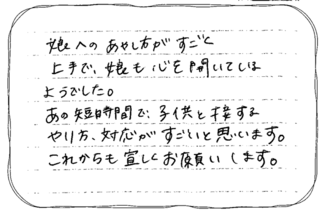 娘へのあやし方がすごく
上手で、娘も心を開いている
ようでした。
あの短時間で、子供と接する
やり方、対応がすごいと思います。
これからも宜しくお願いします。